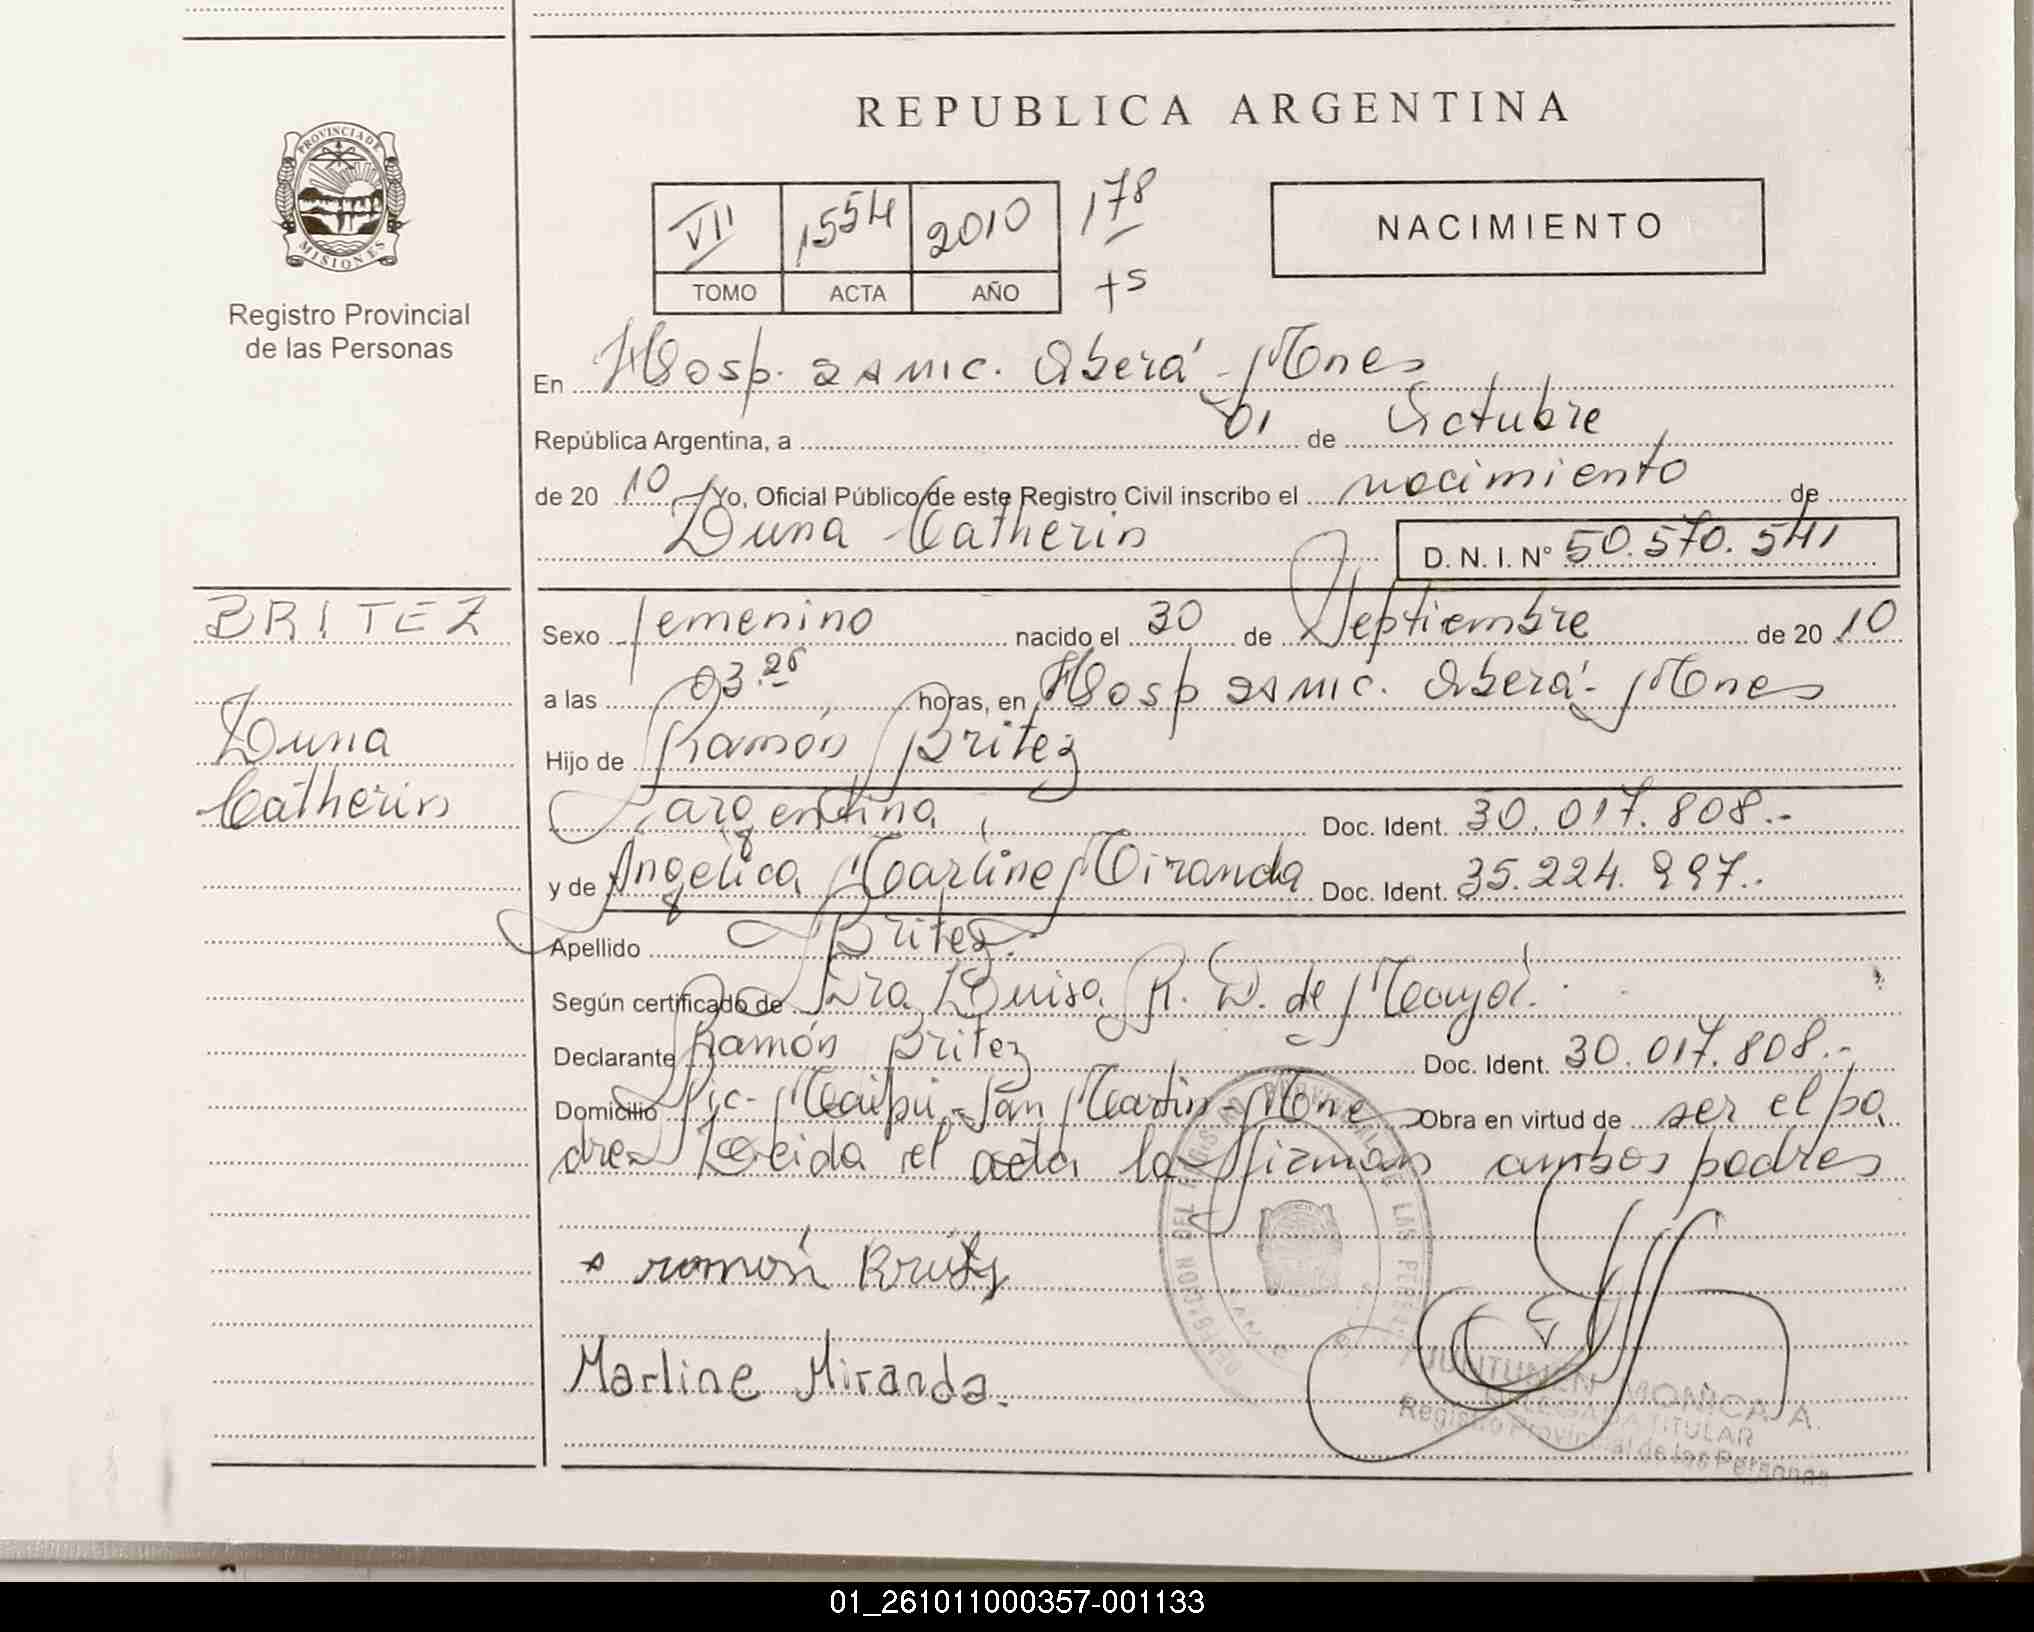 REPUBLICA ARGENTINA
PROVINCIA DE
MISIONES
Registro Provincial
de las Personas
VII 1554 2010 178
TOMO ACTA AÑO +5
NACIMIENTO
En Hosp. SAMIC. Oberá - Mnes
República Argentina, a 01 de Octubre
de 20 10 Yo, Oficial Público de este Registro Civil inscribo el nacimiento de
Luna Catherin D. N. I. N° 50.570.541
BRITEZ
Luna
Catherin
Sexo femenino nacido el 30 de Septiembre de 20 10
a las 03.25 horas, en Hosp SAMIC. Oberá - Mnes
Hijo de Ramón Britez
argentina Doc. Ident. 30.017.808.-
y de Angélica Marline Miranda Doc. Ident. 35.224.997..
Apellido Britez.
Según certificado de Dra Luisa R. D. de Mayol.
Declarante Ramón Britez Doc. Ident. 30.017.808.-
Domicilio Pic- Maipú - San Martin - Mnes Obra en virtud de ser el pa
dre Leida el acta la firman ambos padres
ramón Britez
Marline Miranda.
MONICA A.
DELEGADA TITULAR
Registro Provincial de las Personas
01_261011000357-001133